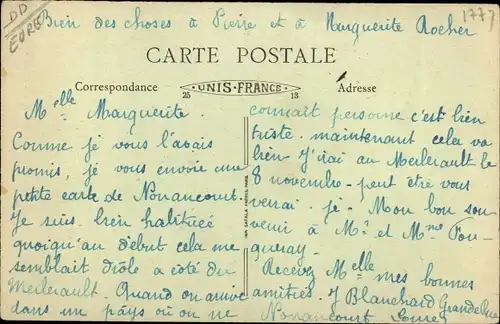 DD
EURE
Bien des choses à Pierre et à Marguerite Rocher
1777
CARTE POSTALE
Correspondance
25 UNIS-FRANCE 13
Adresse
Melle Marguerite.
Comme je vous l'avais
promis, je vous envoie une
petite carte de Nonancourt
Je suis bien habituée
quoiqu'au début cela me
semblait drôle a côté du
Meilerault. Quand on arrive
dans un pays où on ne
connait personne c'est bien
triste. maintenant cela va
bien. J'irai au Meilerault le
8 novembre peut être vous
verrai-je. Mon bon sou-
venir à Mr et Mme Fou-
queray.
Recevez Melle mes bonnes
amitiés. J Blanchard Grande Rue
Nonancourt Eure